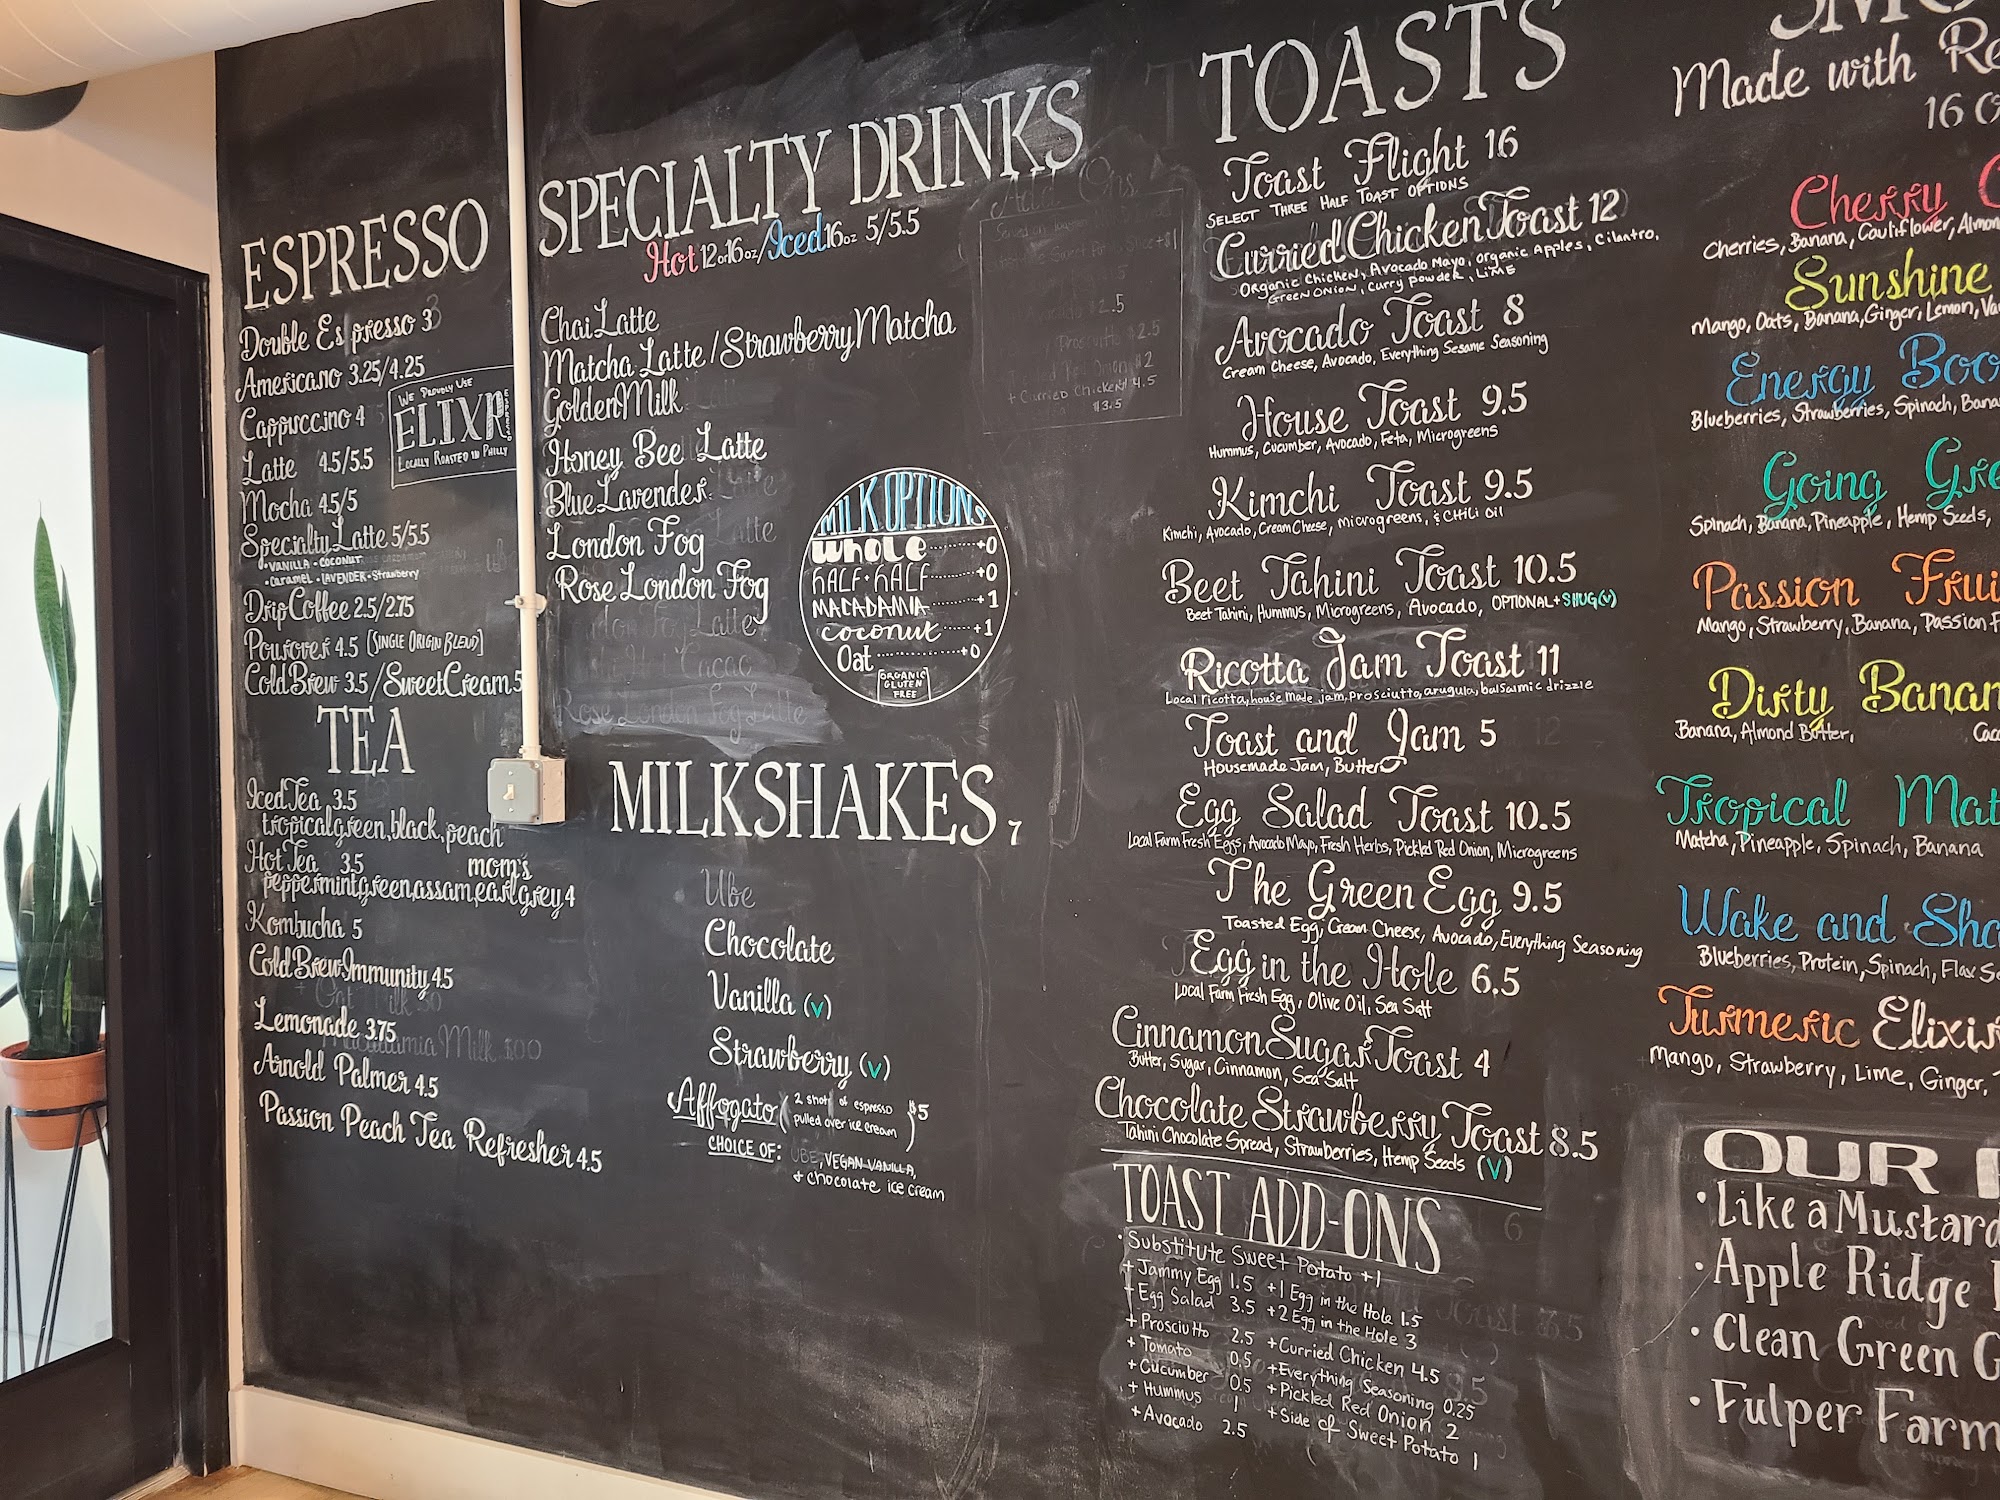 ESPRESSO
Double Espresso 3
Americano 3.25/4.25
Cappuccino 4
Latte 4.5/5.5
Mocha 4.5/5
Specialty Latte 5/5.5
• VANILLA • COCONUT
• Caramel • LAVENDER • Strawberry
Drip Coffee 2.5/2.75
Pourover 4.5 [SINGLE ORIGIN BLEND]
Cold Brew 3.5/Sweet Cream 5
WE PROUDLY USE
ELIXR
ESPRESSO
LOCALLY ROASTED IN PHILLY
TEA
Iced Tea 3.5
tropical green, black, peach
Hot Tea 3.5 mom's
peppermint, green, assam, earl grey 4
Kombucha 5
Cold Brew Immunity 4.5
Lemonade 3.75
Arnold Palmer 4.5
Passion Peach Tea Refresher 4.5
SPECIALTY DRINKS
Hot 12 or 16 oz/Iced 16oz 5/5.5
Chai Latte
Matcha Latte / Strawberry Matcha
Golden Milk
Honey Bee Latte
Blue Lavender
London Fog
Rose London Fog
MILK OPTIONS
WHOLE ........ +0
HALF • HALF ........ +0
MACADAMIA ...... +1
COCONUT ..... +1
Oat ............ +0
ORGANIC
GLUTEN
FREE
MILKSHAKES 7
Ube
Chocolate
Vanilla (v)
Strawberry (v)
Affogato (2 shots of espresso
pulled over ice cream) $5
CHOICE OF: UBE, VEGAN VANILLA,
+ chocolate ice cream
Add Ons
TOASTS
Toast Flight 16
SELECT THREE HALF TOAST OPTIONS
Curried Chicken Toast 12
Organic Chicken, Avocado Mayo, Organic Apples, Cilantro,
Green Onion, Curry Powder, Lime
Avocado Toast 8
Cream Cheese, Avocado, Everything Sesame Seasoning
House Toast 9.5
Hummus, Cucumber, Avocado, Feta, Microgreens
Kimchi Toast 9.5
Kimchi, Avocado, Cream Cheese, microgreens, & CHili Oil
Beet Tahini Toast 10.5
Beet Tahini, Hummus, Microgreens, Avocado, OPTIONAL + SHUG (v)
Ricotta Jam Toast 11
Local ricotta, house made jam, prosciutto, arugula, balsamic drizzle
Toast and Jam 5
Housemade Jam, Butter
Egg Salad Toast 10.5
Local Farm Fresh Eggs, Avocado Mayo, Fresh Herbs, Pickled Red Onion, Microgreens
The Green Egg 9.5
Toasted Egg, Cream Cheese, Avocado, Everything Seasoning
Egg in the Hole 6.5
Local Farm Fresh Egg, Olive Oil, Sea Salt
Cinnamon Sugar Toast 4
Butter, Sugar, Cinnamon, Sea Salt
Chocolate Strawberry Toast 8.5
Tahini Chocolate Spread, Strawberries, Hemp Seeds (V)
TOAST ADD-ONS
• Substitute Sweet Potato +1
+ Jammy Egg 1.5 +1 Egg in the Hole 1.5
+ Egg Salad 3.5 +2 Egg in the Hole 3
+ Prosciutto 2.5 + Curried Chicken 4.5
+ Tomato 0.5 + Everything Seasoning 0.25
+ Cucumber 0.5 + Pickled Red Onion 2
+ Hummus 1 + Side of Sweet Potato 1
+ Avocado 2.5
Made with
16
Cherry
Cherries, Banana, Cauliflower,
Sunshine
Mango, Oats, Banana, Ginger, Lemon,
Energy
Blueberries, Strawberries, Spinach,
Going
Spinach, Banana, Pineapple, Hemp Seeds,
Passion
Mango, Strawberry, Banana, Passion
Dirty
Banana, Almond Butter,
Tropical
Matcha, Pineapple, Spinach, Banana
Wake and
Blueberries, Protein, Spinach, Flax
Turmeric Elixir
Mango, Strawberry, Lime, Ginger,
OUR
• Like a Mustard
• Apple Ridge
• Clean Green
• Fulper Farm